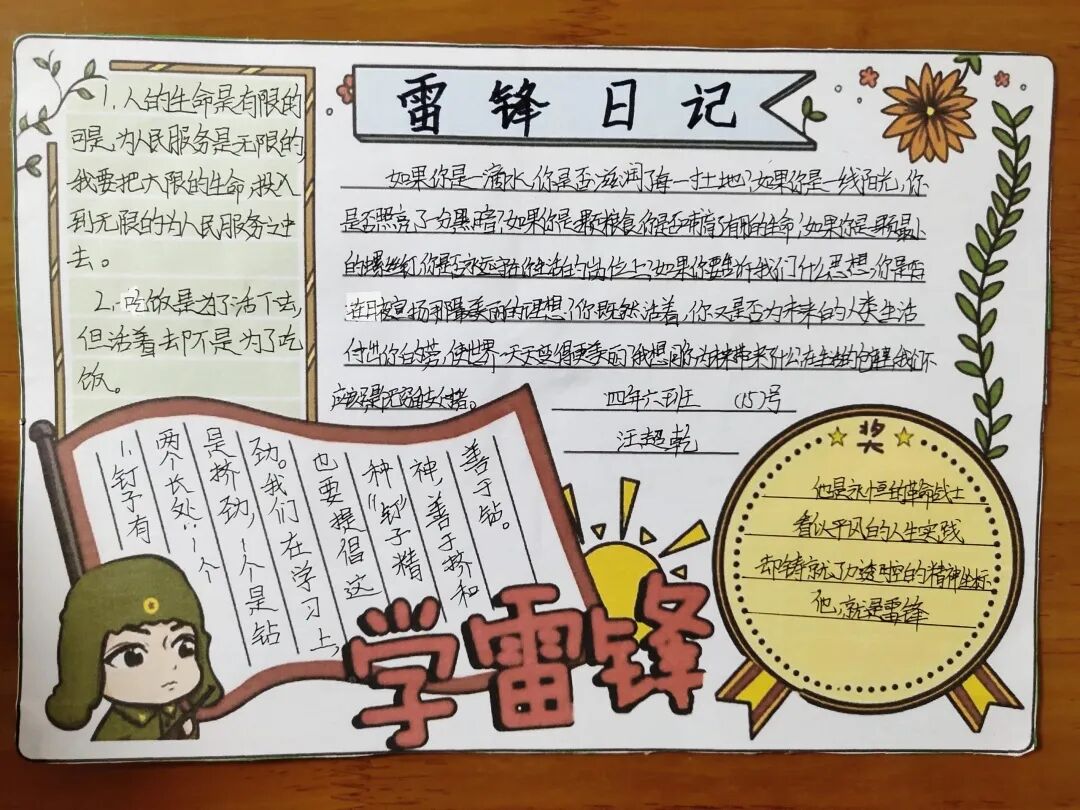 雷锋日记
1.人的生命是有限的
可是,为人民服务是无限的,
我要把大限的生命,投入
到无限的为人民服务之中
去。
2.吃饭是为了活下去,
但活着却不是为了吃
饭。
如果你是一滴水,你是否滋润了每一寸土地?如果你是一线阳光,你
是否照亮了一分黑暗?如果你是一颗粮食,你是否哺育了有用的生命?如果你是一颗最小
的螺丝钉,你是否永远守在你生活的岗位上?如果你要告诉我们什么思想,你是否
在日夜宣扬那最美丽的理想?你既然活着,你又是否为未来的人类生活
付出你的劳,使世界一天天变得更美丽?我想问你,为未来带来什么?在生活的仓库里,我们不
应该是无穷的支付者。
四年六班 (15)号
汪超乾
1.钉子有
两个长处:一个
是挤劲,一个是钻
劲。我们在学习上,
也要提倡这
种“钉”子精
神,善于挤和
善于钻。
学雷锋
奖
他是永恒的革命战士
看似平凡的人生实践
却铸就了力透时空的精神坐标
他,就是雷锋